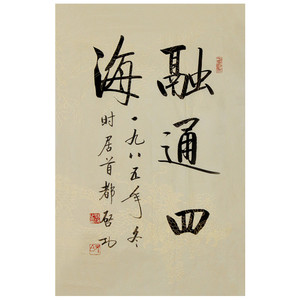 融通四
海
一九八五年冬
时居首都启功